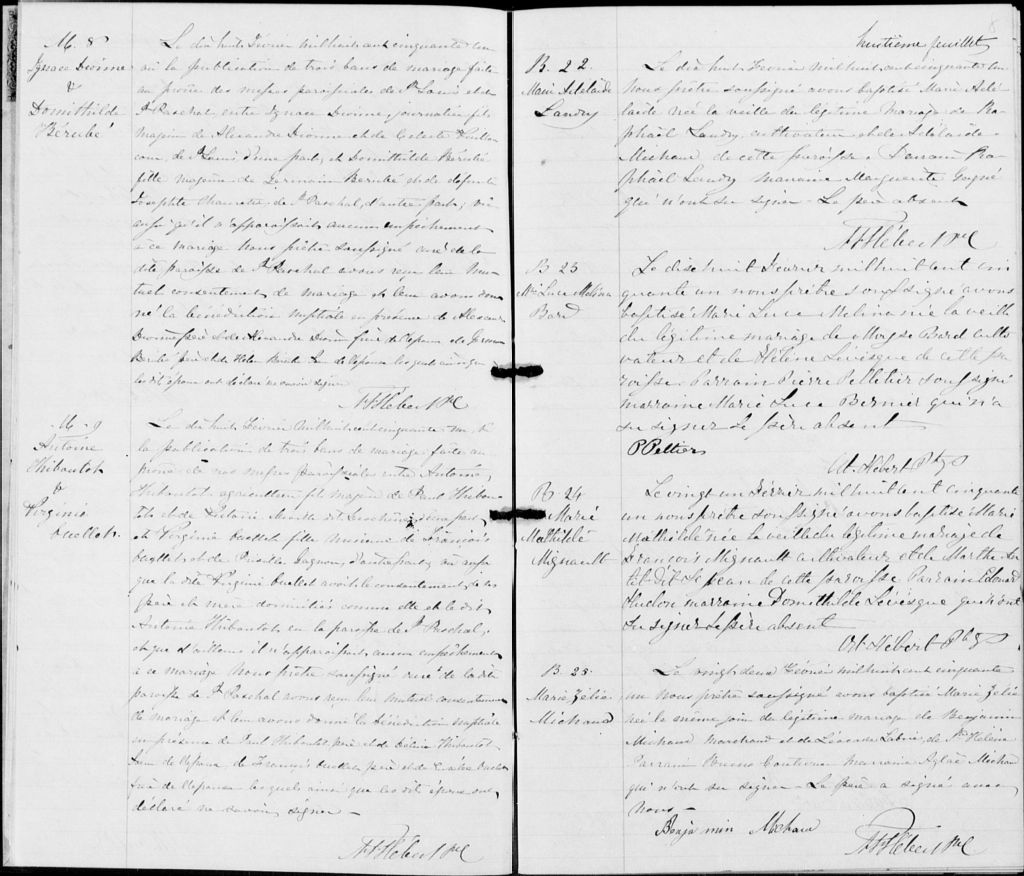 M. 8
Ignace Dionne
&
Domithilde
Bérubé
Le dix huit Février mil huit cent cinquante un
vû la publication de trois bans de mariage faite
au prône des messes paroissiales de St Louis et de
St Paschal, entre Ignace Dionne, journalier fils
majeur de Alexandre Dionne et de Celeste
de St Louis d'une part, et Domithilde Bérubé
fille majeure de Germain Bérubé et de défunte
Josephte de St Paschal, d'autre part; vû
aussi qu'il n'apparaissait aucun empêchement
à ce mariage Nous prêtre soussigné curé de la
dite paroisse de St Paschal avons reçu leur mu-
tuel consentement de mariage et leur avons don-
né la bénédiction nuptiale en présence de Alexan-
Dionne père & de Alexandre Dionne frère de l'époux de Germain
Bérubé père et de de l'épouse lesquels ainsi que
les dits époux ont déclaré ne savoir signer
F. Hébert Ptre C
M. 9
Antoine
Thibautot
&
Virginie
Ouellet
Le dix huit Février mil huit cent cinquante un, vû
la publication de trois bans de mariage faite au
prône de nos messes paroissiales entre Antoine
Thibautot agriculteur fils majeur de Paul Thibau-
tot et de dit d'une part,
et Virginie Ouellet fille mineure de François
Ouellet et de Gagnon, d'autre part; vû aussi
que la dite Virginie Ouellet avait le consentement de ses
père et mère domiciliés comme elle et le dit
Antoine Thibautot en la paroisse de St Paschal,
et que d'ailleurs il n'apparaissait aucun empêchement
à ce mariage Nous prêtre soussigné curé de la dite
paroisse de St Paschal avons reçu leur mutuel consentement
de mariage et leur avons donné la bénédiction nuptiale
en présence de Paul Thibautot père et de Thibautot
de l'époux de François Ouellet père et de Ouellet
frère de l'épouse lesquels ainsi que les dits époux ont
déclaré ne savoir signer -
F. Hébert Ptre C
huitième feuillet
B. 22.
Marie Adelaïde
Landry
Le dix huit Février mil huit cent cinquante un
Nous prêtre soussigné avons baptisé Marie Adé-
laïde née la veille du légitime mariage de Ra-
phaël Landry, cultivateur et de Adélaïde
Michaud de cette paroisse. Parrain Ra-
phaël Landry marraine Marguerite Gagné
qui n'ont su signer - Le père absent
F. Hébert Ptre C
B 23
Mie Luce Melina
Bard
Le dix huit Fevrier mil huit cent cin
quante un nous prêtre soussigné avons
baptisé Marie Luce Melina née la veille
du légitime mariage de Moyse Bard culti
vateur et de Hélène Levèsque de cette pa
roisse. Parrain Pierre Pelletier soussigné
marraine Marie Luce Bernier qui n'a
su signer le père absent
P Peltier
Ol. Hébert Pt
B 24
Marie
Mathilde
Mignault
Le vingt un Février mil huit cent cinquante
un nous prêtre soussigné avons baptisé Marie
Mathilde née la veille du légitime mariage de
François Mignault cultivateur et de Marthe Au
tit dit Le jean de cette paroisse Parrain Edouard
Hudon marraine Domithilde Levèsque qui n'ont
su signer le père absent
Ol. Hébert Pt
B. 25.
Marie Zélie
Michaud
Le vingt deux Février mil huit cent cinquante
un Nous prêtre soussigné avons baptisé Marie Zélie
née le même jour du légitime mariage de Benjamin
Michaud marchand et de Lebrie, de Ste Hélène
Parrain Couture marraine Aglaé Michaud
qui n'ont su signer - Le père a signé avec
nous -
Benjamin Michaud
F. Hébert Ptre C